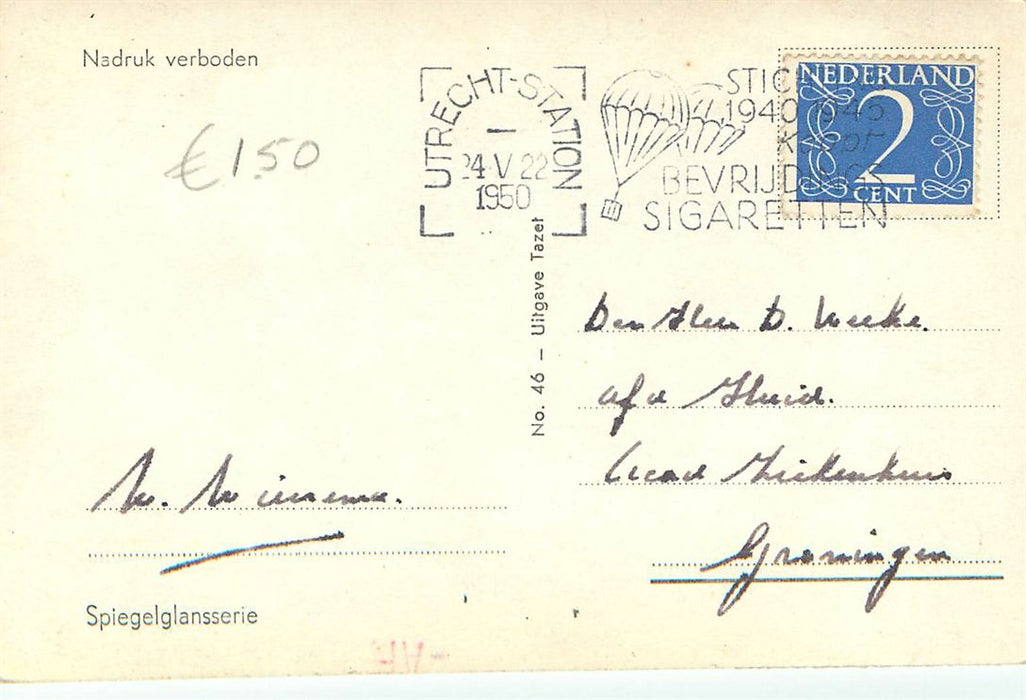 Nadruk verboden
€ 1.50
UTRECHT-STATION
24 V 22
1950
STICHTING
1940 1945
koopt
BEVRIJDINGS
SIGARETTEN
NEDERLAND
2
CENT
No. 46 – Uitgave Tazet
Den Heer D.
afd Huid.
Acad Ziekenhuis
Groningen
W. Wiersema.
Spiegelglansserie